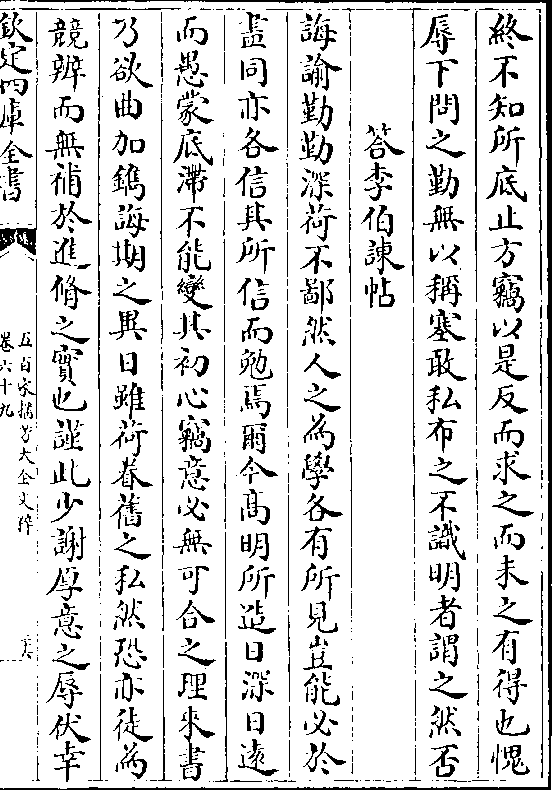 終不知所底止方竊以是反而求之而未之有得也愧
辱下問之勤無以稱塞敢私布之不識明者謂之然否
答李伯諫帖
誨諭勤勤深荷不鄙然人之為學各有所見豈能必於
盡同亦各信其所信而勉焉爾今髙明所造日深日遠
而愚蒙底滯不能變其初心竊意必無可合之理來書
乃欲曲加鐫誨期之異日雖荷眷舊之私然恐亦徒為
競辨而無補於進脩之實也謹此少謝厚意之辱伏幸
欽定四庫全書
五百家播芳大全文粹
卷六十九